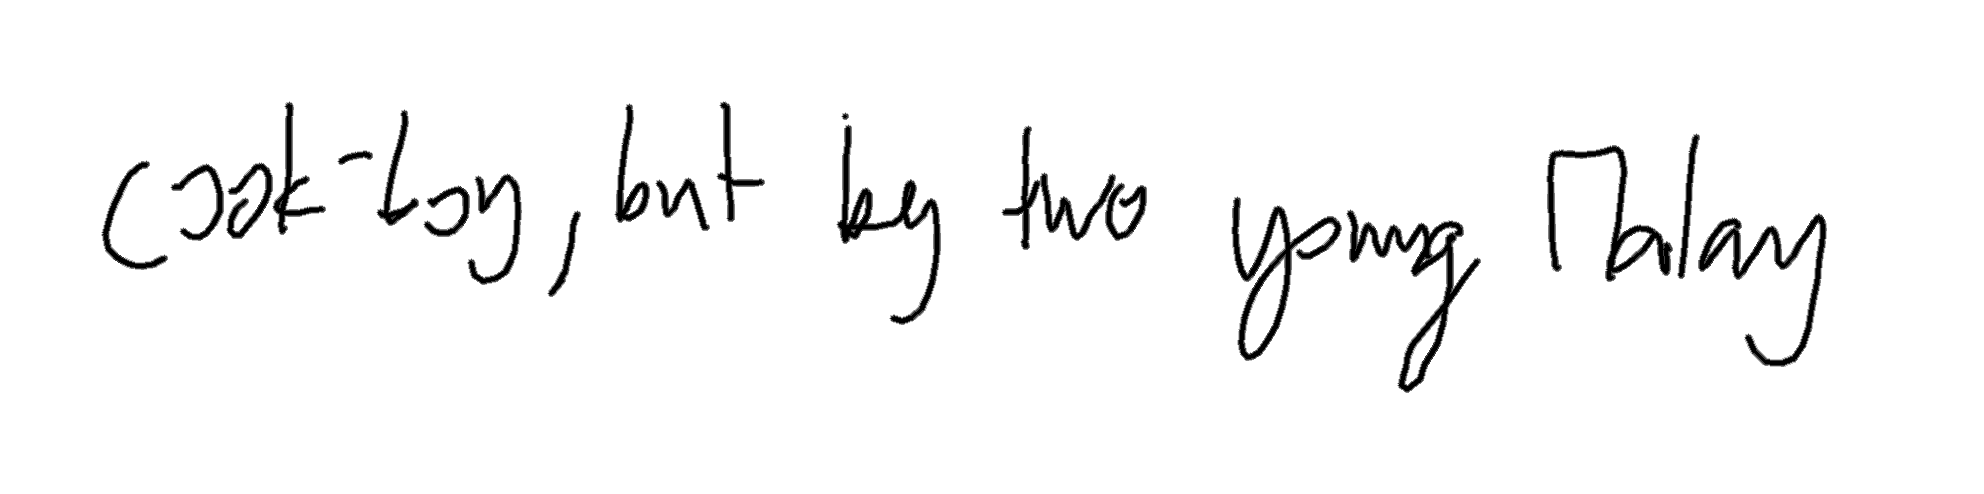 cook-boy, but by two young Malay